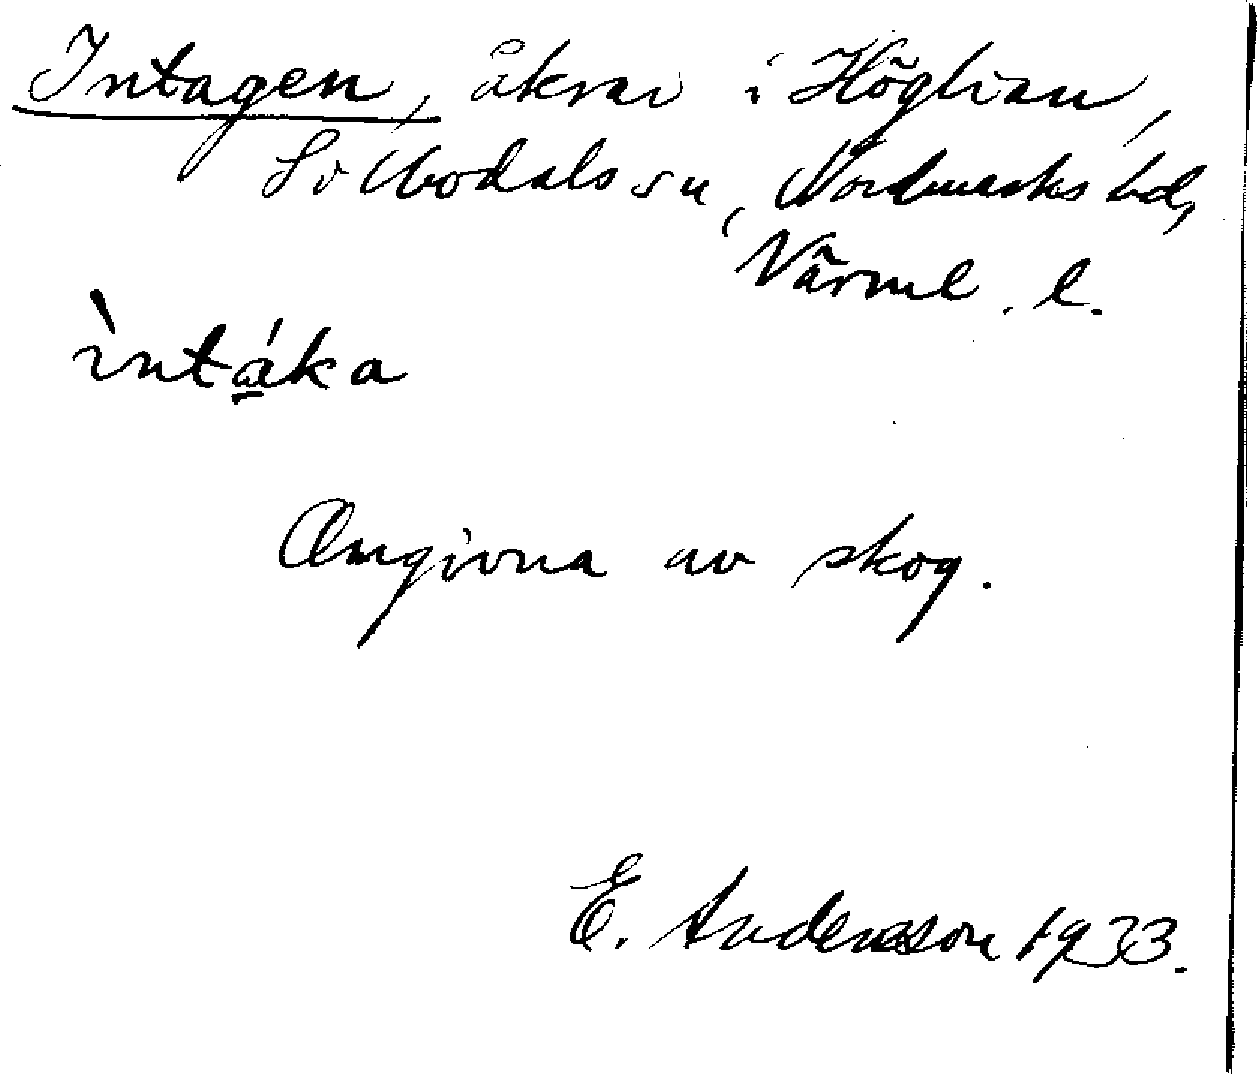 Intagen, åkrar i Höglian,
Sv Ulvodals sn, Nordmarks hd,
Värml. l.
ìntá̲ka
Omgivna av skog.
E. Andersson 1933.